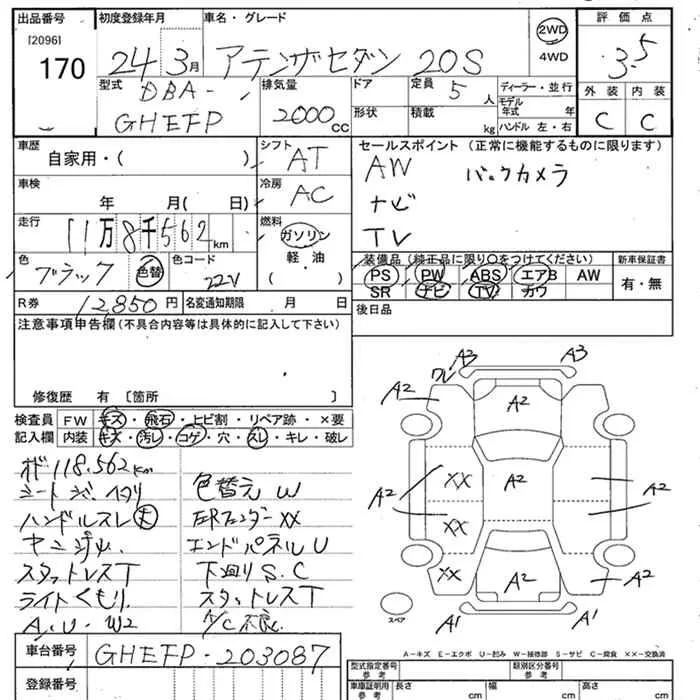 出品番号 初度登録年月 車名・グレード 2WD 評価点
[2096]
170 24 3月 アテンザセダン 20S 4WD 3.5
型式 DBA- 排気量 ドア 定員 5人 ディーラー・並行 外装 内装
GHEFP 2000cc 形状 積載 kg モデル年式 年 C C
ハンドル 左・右
車歴 自家用・( ) シフト AT セールスポイント (正常に機能するものに限ります)
車検 年 月( 日) 冷房 AC AW バックカメラ
ナビ
走行 11万8千562km 燃料 ガソリン TV
軽・油
( )
色 ブラック 色替 色コード 22V 装備品 (純正品に限り○をつけてください) 新車保証書
PS PW ABS エアB AW 有・無
SR ナビ TV カワ
R券 12,850円 名変通知期限 月 日 後日品
注意事項申告欄 (不具合内容等は具体的に記入して下さい)
修復歴 有 [箇所 ]
検査員 FW キズ・飛石・ヒビ割・リペア跡・×要
記入欄 内装 キズ・汚レ・コゲ・穴・スレ・キレ・破レ
118.562km
色替え W
ハンドルスレ 大
エンドパネルU
スタットレスT 下廻りS.C
ライトくもり. スタットレスT
A.U-W2 A/C不良
A3 A3
ワレ
A2 A2 A2
A2 XX A2 A2
XX
XX A2 A2
A1 A1
スペア
A-キズ E-エクボ U-凹み W-補修跡 S-サビ C-腐食 ××-交換済
車台番号 GHEFP-203087
登録番号
型式指定番号 参考 類別区分番号 参考
車庫証明用 参考 長さ cm 幅 cm 高さ cm